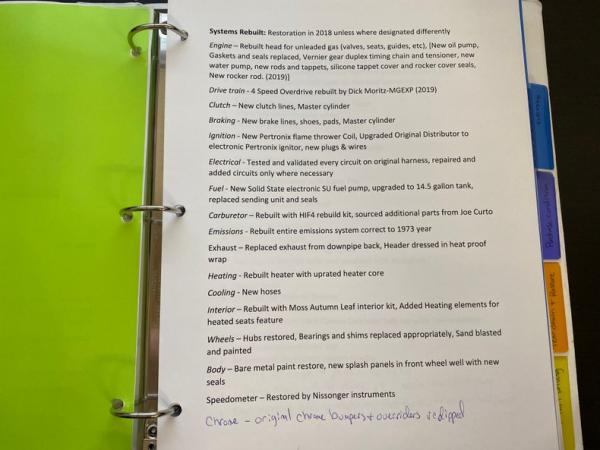 Systems Rebuilt: Restoration in 2018 unless where designated differently
Engine – Rebuilt head for unleaded gas (valves, seats, guides, etc), [New oil pump,
Gaskets and seals replaced, Vernier gear duplex timing chain and tensioner, new
water pump, new rods and tappets, silicone tappet cover and rocker cover seals,
New rocker rod. (2019)]
Drive train - 4 Speed Overdrive rebuilt by Dick Moritz-MGEXP (2019)
Clutch – New clutch lines, Master cylinder
Braking - New brake lines, shoes, pads, Master cylinder
Ignition - New Pertronix flame thrower Coil, Upgraded Original Distributor to
electronic Pertronix ignitor, new plugs & wires
Electrical - Tested and validated every circuit on original harness, repaired and
added circuits only where necessary
Fuel - New Solid State electronic SU fuel pump, upgraded to 14.5 gallon tank,
replaced sending unit and seals
Carburetor – Rebuilt with HIF4 rebuild kit, sourced additional parts from Joe Curto
Emissions - Rebuilt entire emissions system correct to 1973 year
Exhaust – Replaced exhaust from downpipe back, Header dressed in heat proof
wrap
Heating - Rebuilt heater with uprated heater core
Cooling - New hoses
Interior – Rebuilt with Moss Autumn Leaf interior kit, Added Heating elements for
heated seats feature
Wheels – Hubs restored, Bearings and shims replaced appropriately, Sand blasted
and painted
Body – Bare metal paint restore, new splash panels in front wheel well with new
seals
Speedometer – Restored by Nissonger instruments
Chrome - original chrome bumpers + overriders redipped